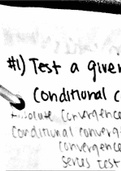 #1) Test a given
Conditional c
Absolute Convergence
Conditional converg
convergence
series test